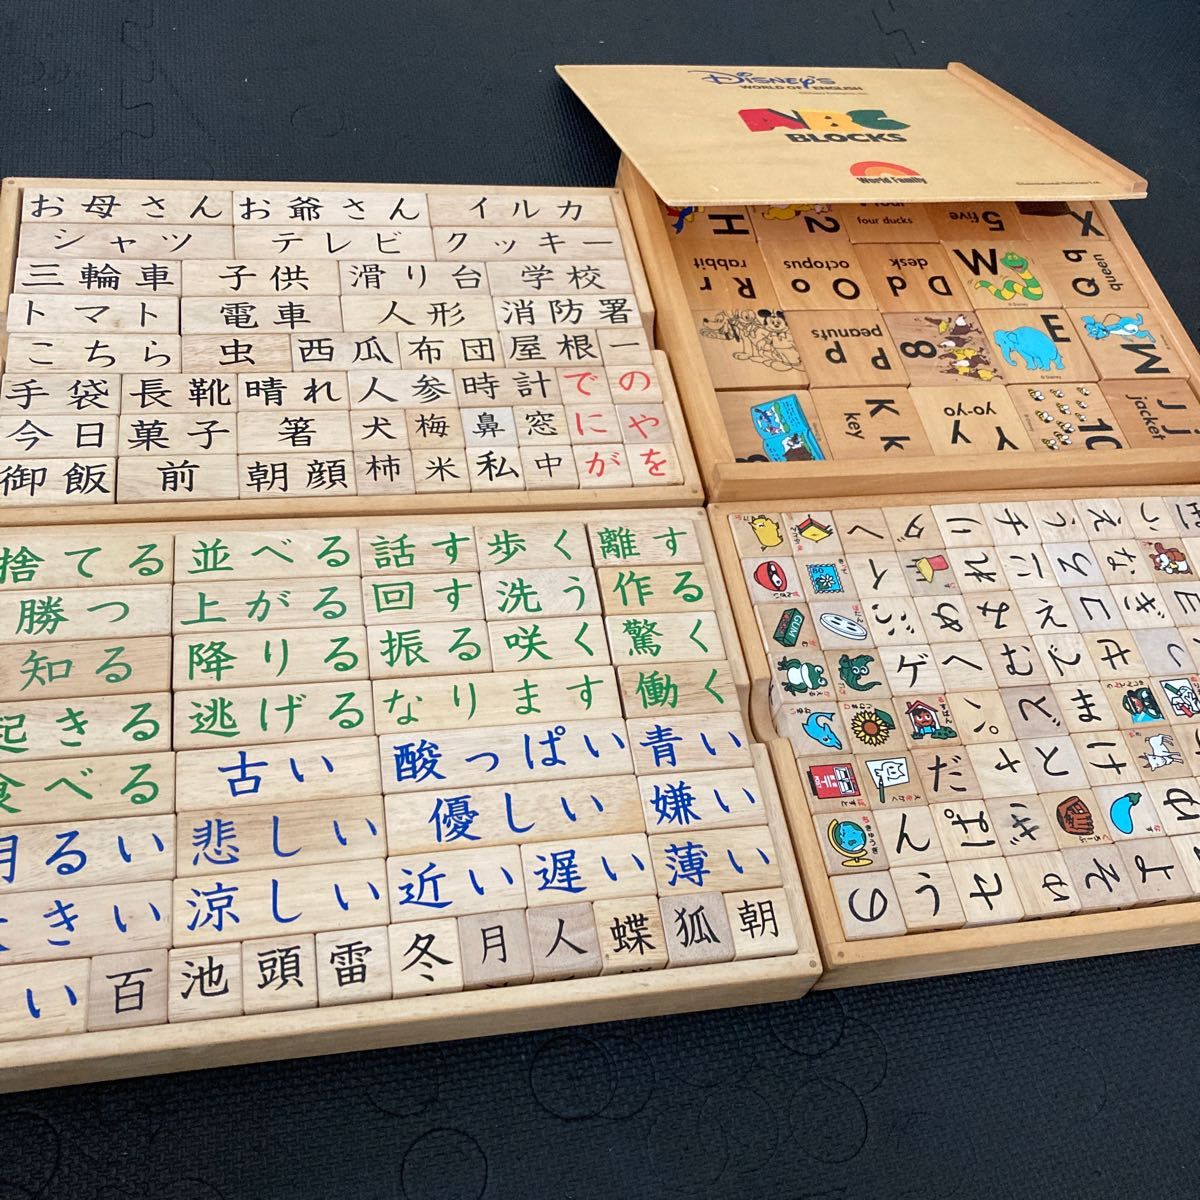 お母さん お爺さん イルカ
シャツ テレビ クッキー
三輪車 子供 滑り台 学校
トマト 電車 人形 消防署
こちら 虫 西瓜 布団 屋根 一
手袋 長靴 晴れ 人参 時計 で の
今日 菓子 箸 犬 梅 鼻 窓 に や
御飯 前 朝顔 柿 米 私 中 が を
Disney's
WORLD OF ENGLISH
ABC
BLOCKS
World Family
H 2 four ducks 5 five X
rabbit R r octopus O o desk D d W queen Q q
peanuts P p 8 E M
key K k yo-yo Y y 10 jacket J j
捨てる 並べる 話す 歩く 離す
勝つ 上がる 回す 洗う 作る
知る 降りる 振る 咲く 驚く
起きる 逃げる なります 働く
食べる 古い 酸っぱい 青い
明るい 悲しい 優しい 嫌い
きい 涼しい 近い 遅い 薄い
い 百 池 頭 雷 冬 月 人 蝶 狐 朝
へ ダ り チ え
れ に ろ な
GUM ご め み え ぎ
ゲ へ む で さ
ど ま
だ と け
ん ぱ ぎ ゆ
の う さ ゅ そ よ